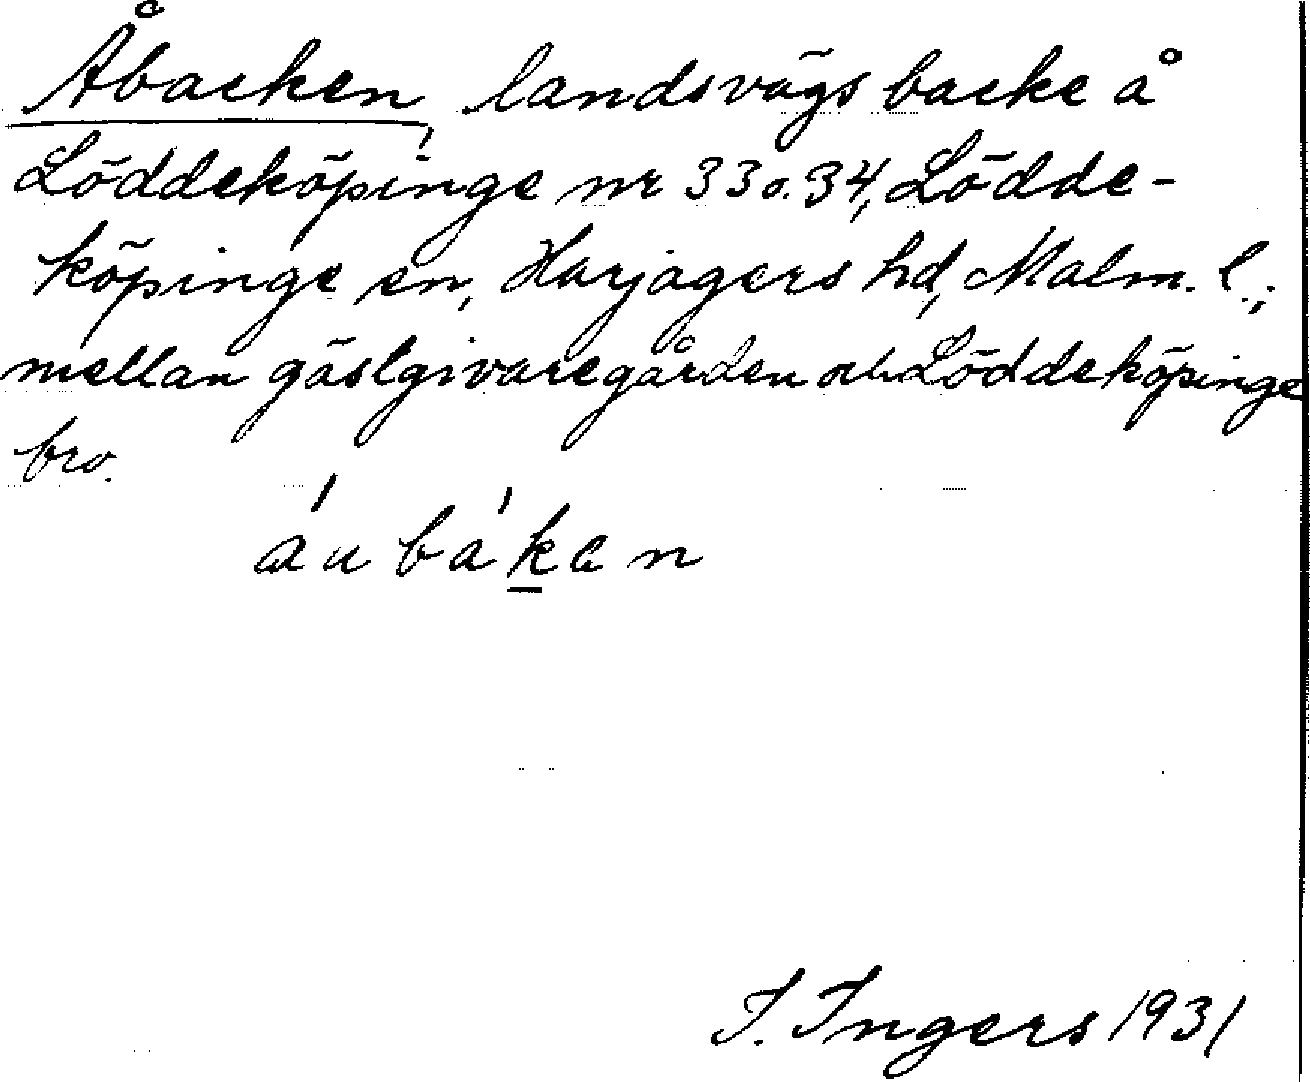 Åbacken, landsvägsbacke å
Löddeköpinge nr 33 o. 34, Lödde-
köpinge sn, Harjagers hd, Malm. l.;
mellan gästgivaregården och Löddeköpinge
bro.
áubáken
I. Ingers 1931